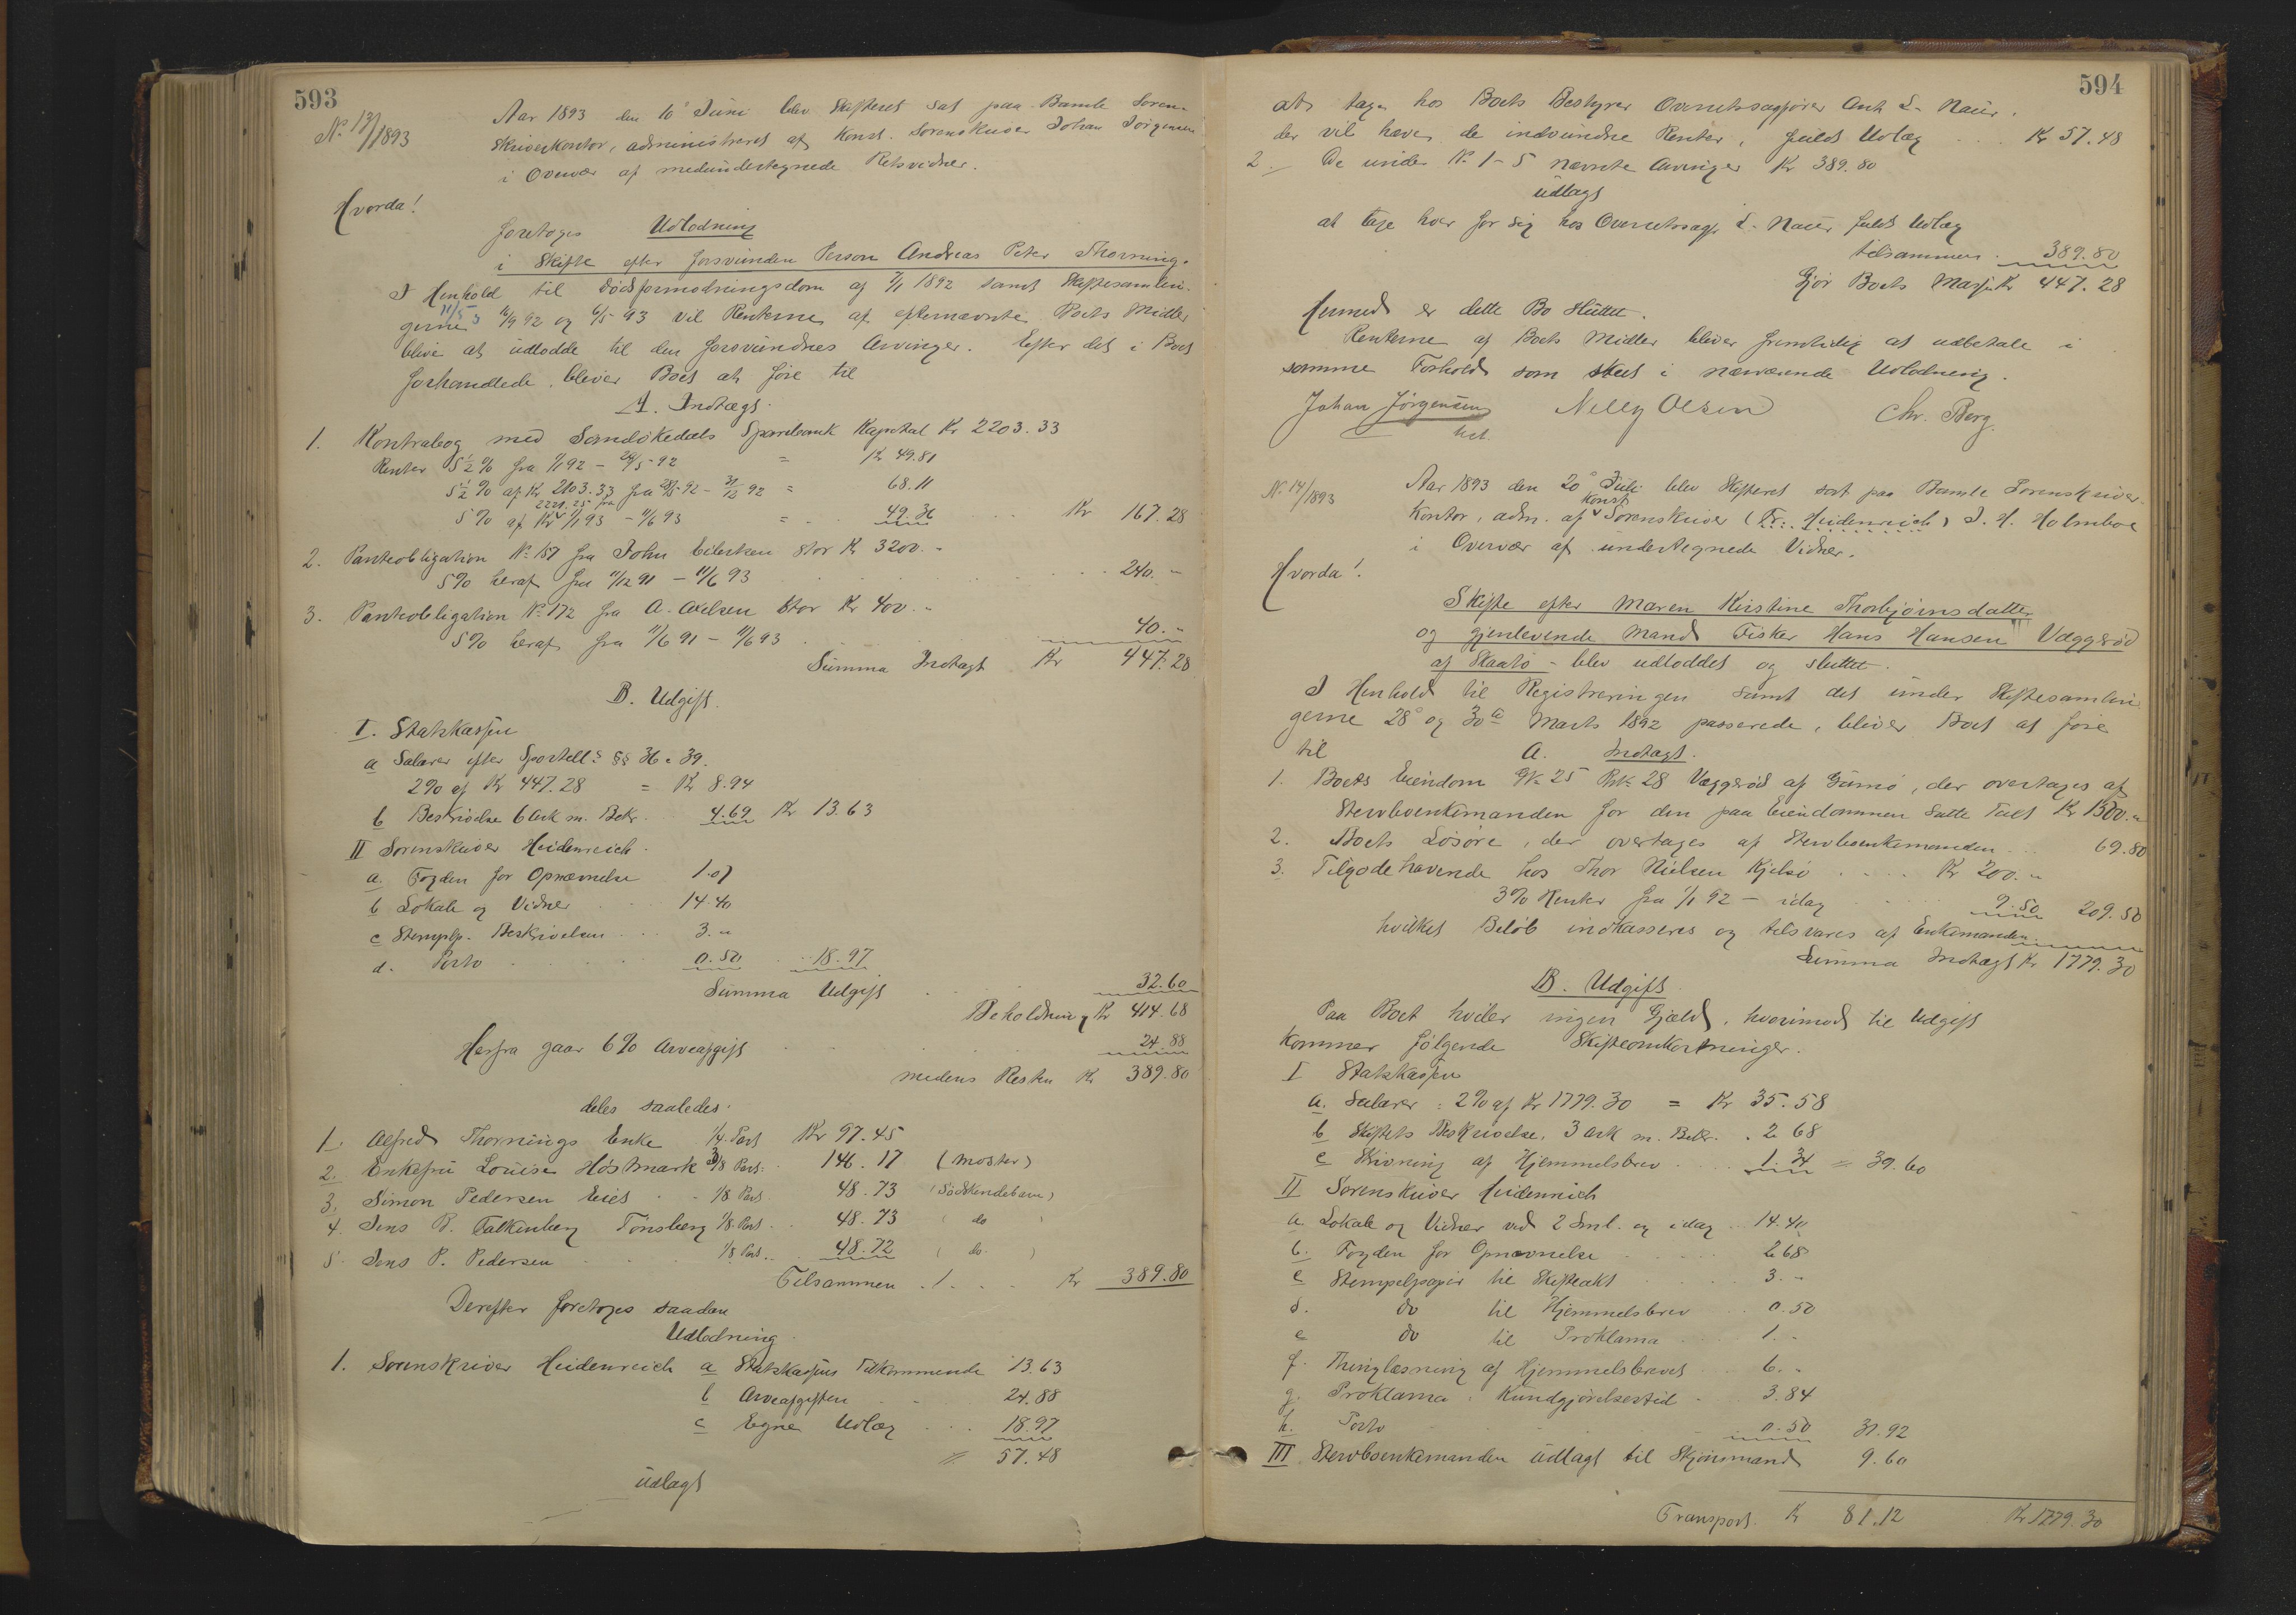 593
No. 13/1893
Aar 1893 den 10 Juni blev Skifteret sat paa Bamle Soren-
skriverkontor, administreret af Konst. Sorenskriver Johan Jörgensen
i Overvær af medundertegnede Retsvidner.
Hvorda!
foretoges Udlodning
i Skifte efter forsvunden Person Andreas Peter Thorning.
I Henhold til Dödsformodningsdom af 7/1 1892 samt Skiftesamlin-
gerne 16/9 92 og 6/5 93 vil Renterne af efternævnte Boets Midler
blive at udlodde til den forsvundnes Arvinger. Efter det i Boet
forhandlede bliver Boet at före til
A. Indtægt.
1. Kontrabog med Sandökedals Sparebank Kapital Kr 2203.33
Renter 5 1/2 % fra 1/1 92 - 28/5 92 = Kr 49.81
5 1/2 % af Kr 2103.33 fra 28/5 92 - 31/12 92 = 68.11
2221.25 fra
5 % af Kr 1/1 93 - 11/6 93 = 49.36 Kr 167.28
2. Panteobligation No. 157 fra John Eilertsen stor Kr 3200.-
5% heraf fra 11/12 91 - 11/6 93 240.-
3. Panteobligation No. 172 fra A. Axelsen stor Kr 400.-
5% heraf fra 11/6 91 - 11/6 93 40.-
Summa Indtægt Kr 447.28
B. Udgift.
I. Statskassen
a Salærer efter Sportell. §§ 36 & 39.
2% af Kr 447.28 = Kr 8.94
b Beskrivelse 6 Ark m. Bekr. 4.69 Kr 13.63
II Sorenskriver Heidenreich.
a. Fogden for Opnævnelse 1.07
b Lokale og Vidner 14.40
c Stemplp. Beskrivelsen 3.-
d. Porto 0.50 18.97
Summa Udgift 32.60
Beholdning Kr 414.68
Herfra gaar 6% Arveafgift 24.88
medens Resten Kr 389.80
deles saaledes:
1. Alfred Thornings Enke 1/4 Part Kr 97.45
2. Enkefru Louise Höstmark 3/8 Part. 146.17 (Moster)
3. Simon Pedersen Eiet 1/8 Part 48.73 (Södskendebarn)
4. Jens B. Falkenberg Tönsberg 1/8 Part. 48.73 ( do )
5. Jens P. Pedersen 1/8 Part. 48.72 ( do. )
Tilsammen Kr 389.80
Derefter foretoges saadan
Udlodning.
1. Sorenskriver Heidenreich a Statskassens Tilkommende 13.63
b Arveafgiften 24.88
c Egne Udlæg 18.97
= 57.48
udlagt
594
at tage hos Boets Bestyrer Overretssagförer Ant L. Naur,
der vil hæve de indvundne Renter, fuldt Udlæg Kr 57.48
2. De under No. 1-5 nævnte Arvinger Kr 389.80
udlagt
at tage hver for sig hos Overretssagf. L. Naur fuldt Udlæg
tilsammen 389.80
Gjör Boets Masse Kr 447.28
Hermed er dette Bo sluttet.
Renterne af Boets Midler bliver fremtidig at udbetale i
samme Forhold som skeet i nærværende Udlodning.
Johan Jörgensen Nelly Olsen Chr. Berg.
kst.
No. 14/1893
Aar 1893 den 20 Juli blev Skifteret sat paa Bamle Sorenskriver-
Konst
kontor, adm. af Sorenskriver (Fr. Heidenreich) J. H. Holmboe
i Overvær af undertegnede Vidner.
Hvorda!
Skifte efter Maren Kirstine Thorbjörnsdatter
og gjenlevende Mand Fisker Hans Hansen Væggeröd
af Skaatö - blev udloddet og sluttet.
I Henhold til Registreringen samt det under Skiftesamlin-
gerne 28 og 30 Marts 1892 passerede, bliver Boet at före
til A. Indtægt.
1. Boets Eiendom Gk 25 Brk 28 Væggeröd af Gumö, der overtages af
Stervboenkemanden for den paa Eiendommen satte Taxt Kr 1500.-
2. Boets Lösöre, der overtages af Stervboenkemanden 69.80
3. Tilgodehavende hos Thor Nielsen Kjelsö Kr 200.-
3% Renter fra 1/1 92 - idag 9.50 209.50
hvilket Belöb indkasseres og tilsvares af Enkemanden
Summa Indtægt Kr 1779.30
B. Udgift
Paa Boet hviler ingen Gjæld, hvorimod til Udgift
kommer fölgende Skifteomkostninger.
I Statskassen
a. Salærer: 2% af Kr 1779.30 = Kr 35.58
b Skiftets Beskrivelse, 3 Ark m. Bekr. 2.68
c Skrivning af Hjemmelsbrev 1.34 = 39.60
II Sorenskriver Heidenreich
a Lokale og Vidner ved 2 Saml. og idag 14.40
b. Fogden for Opnævnelse 2.68
c Stempelpapir til Skifteakt 3.-
d. do til Hjemmelsbrev 0.50
e do til Proklama 1.-
f. Thinglæsning af Hjemmelsbrevet 6.-
g. Proklama i Kundgjörelsestid 3.84
h. Porto 0.50 31.92
III Stervboenkemanden udlagt til Skjönsmænd 9.60
Transport Kr 81.12 Kr 1779.30